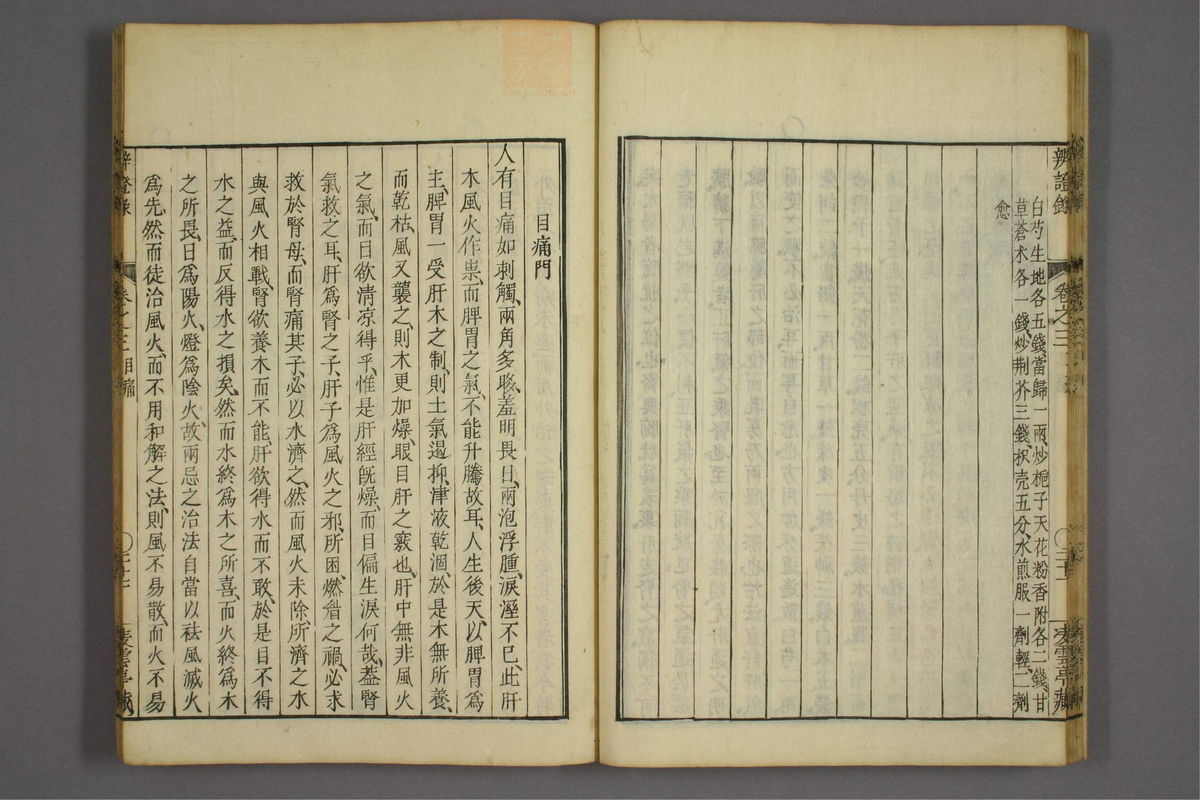 辨證錄 卷之三
白芍生地各五錢、當歸一兩、炒梔子天花粉香附各二錢、甘
草蒼朮各一錢、炒荆芥三錢、枳壳五分、水煎服、一劑輕、二劑
愈、
目痛門
人有目痛如刺觸、兩角多眵、羞明畏日、兩泡浮腫、淚溼不已、此肝
木風火作祟、而脾胃之氣、不能升騰故耳、人生後天、以脾胃爲
主、脾胃一受肝木之制、則土氣遏抑、津液乾涸、於是木無所養、
而乾枯、風又襲之、則木更加燥、眼目肝之竅也、肝中無非風火
之氣、而目欲清凉得乎、惟是肝經旣燥、而目偏生淚何哉、葢腎
氣救之耳、肝爲腎之子、肝子爲風火之邪、所困、燃眥之禍、必求
救於腎母、而腎痛其子、必以水濟之、然而風火未除、所濟之水
與風火相戰、腎欲養木而不能、肝欲得水而不敢、於是目不得
水之益、而反得水之損矣、然而水終爲木之所喜、而火終爲木
之所畏、日爲陽火、燈爲陰火、故兩忌之、治法自當以祛風滅火
爲先、然而徒治風火、而不用和解之法、則風不易散、而火不易
辨證錄 卷之三 目痛